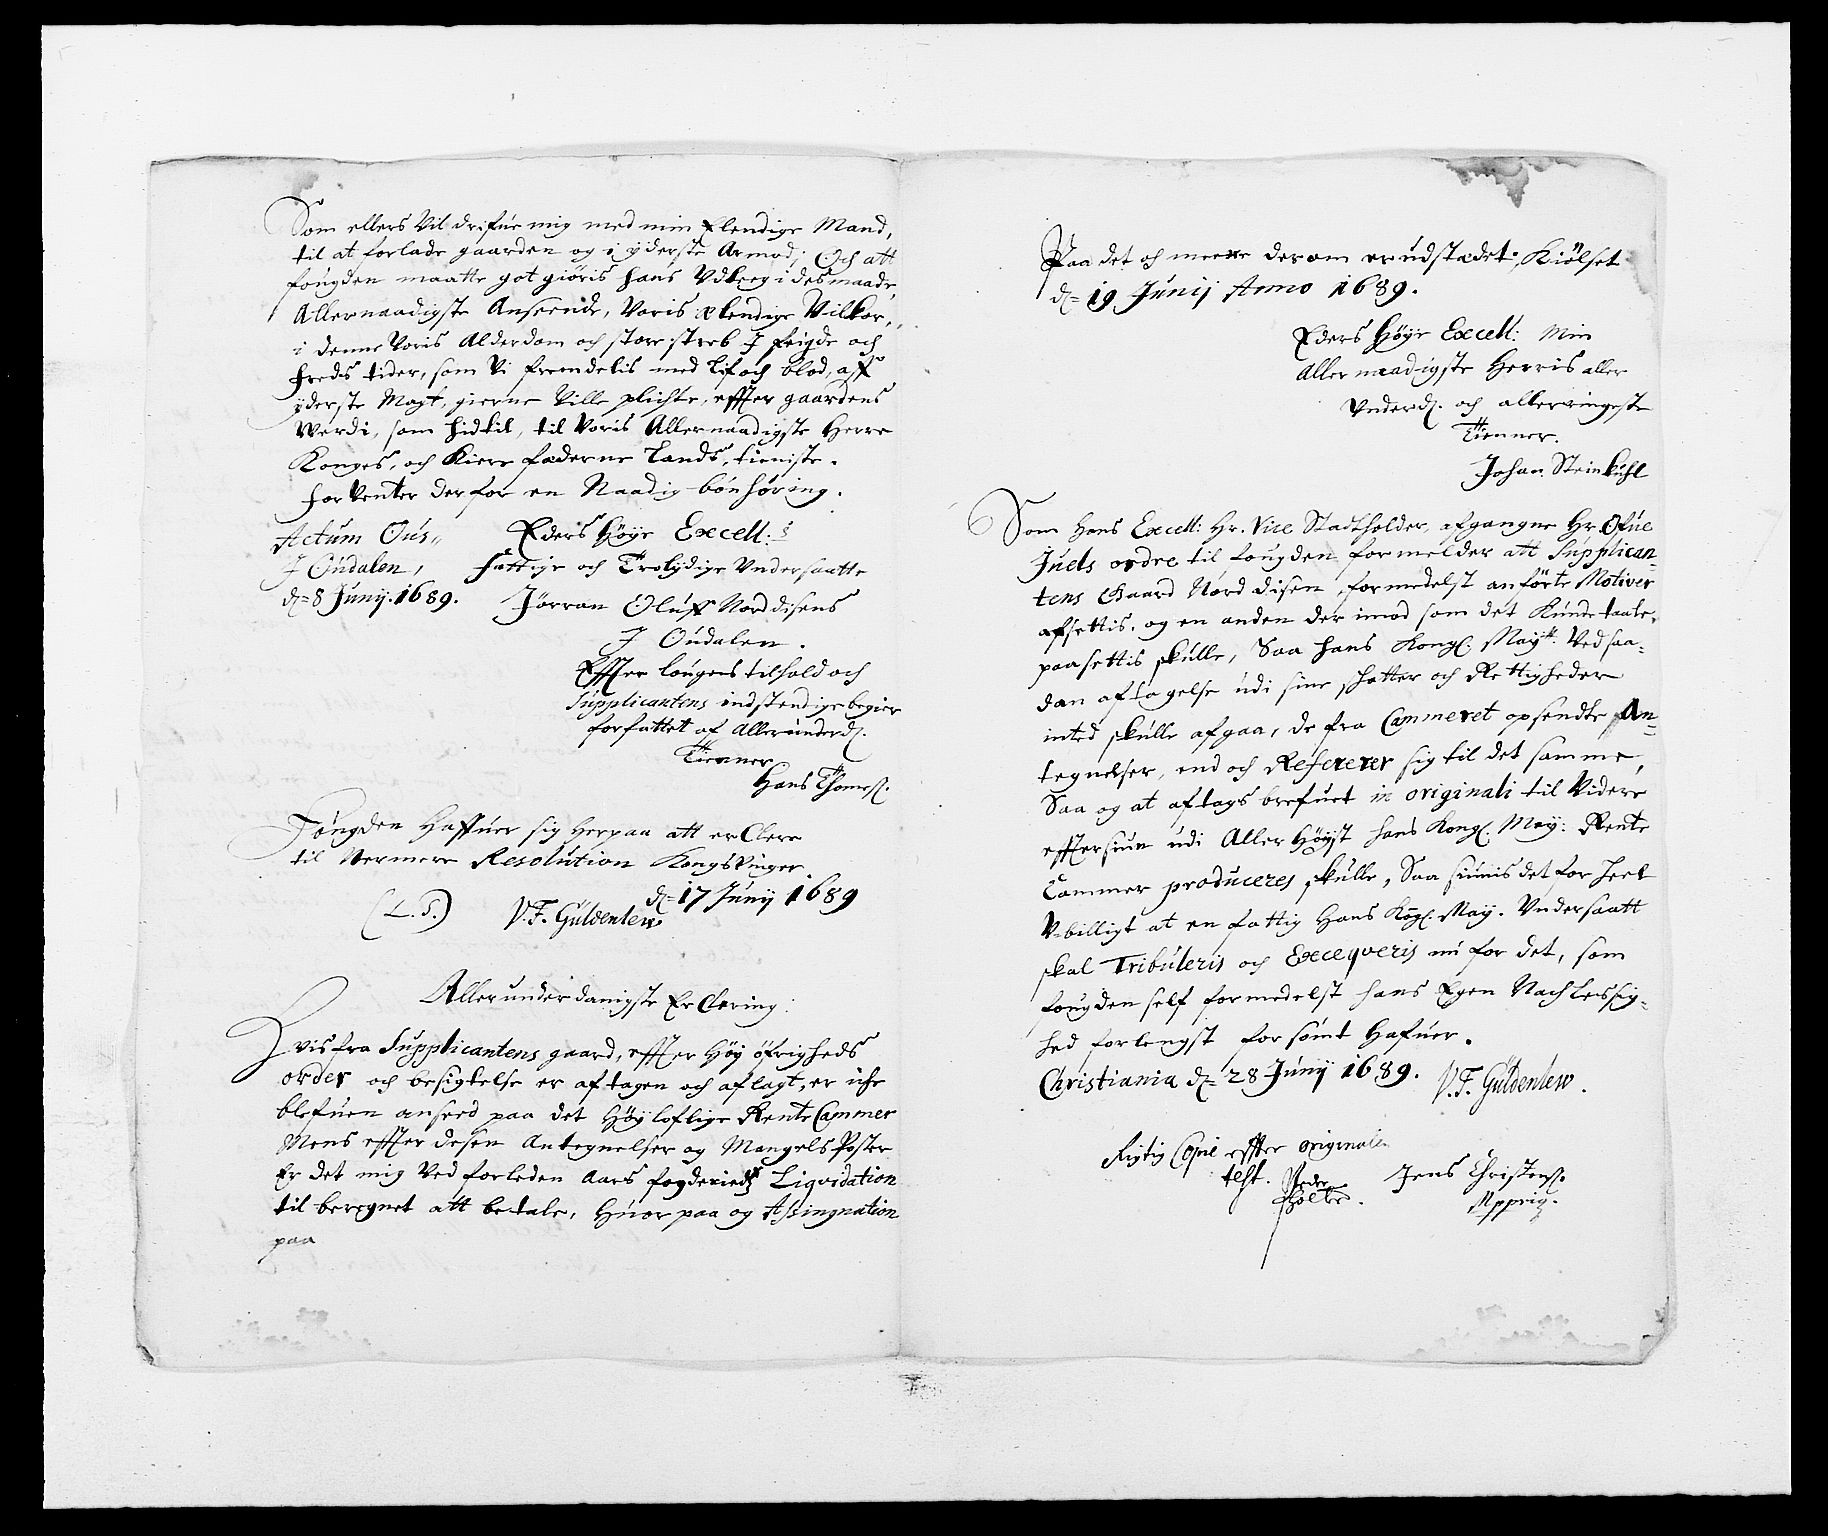 Som ellers vil drifue mig med min Elendige Mand,
til at forlade gaarden og i yderste Armod; Och att
fougden maatte got giöris hans Udleeg i des maade,
Allernaadigste Anseende, Voris Elendige Vilkor,
i denne Voris Alderdom och store streb J feigde och
freds tider, som Vi fremdelis med Lif och blod, aff
yderste Magt, gierne Ville plichte, effter gaardens
Werdi, som hidtil, til Voris Allernaadigste Herre
Konges, och Kiere fæderne Lands, tieniste.
forventer derfor en Naadig bönhøring.
Actum Ous,, Eders Høye Excell:s
J Oudalen, fattige och Trolydige Vndersaatte
d= 8 Junij. 1689. Jörran Oluff Norddisens
J Oudalen.
Effter lougens tilhold och
Supplicantens indstendige begier
forfattet af Allerunderd.
Tienner
Hans Thomeß.
Fougden Haffuer sig herpaa att erClere
til Nermere Resolution Kongsvinger
d= 17 Junij 1689
(L.S.) V.F. Güldenlew
Allerunderdanigste ErClering:
Hvis fra Supplicantens gaard, effter Høy öfrigheds
order och besigtelse er aftagen och aflagt, er iche
blefuen anseed paa det Høyloflige RenteCammer
Mens effter desen Antegnelser og Mangels Poster
Er det mig Ved forleden Aars fogderieds Liqvidation
til beregnet att betale, Huor paa og Assingnation
paa
Paa det och meere derom er udstædet, Kiölset
d= 19 Junij Anno 1689.
Eders Høye Excell: Min
Allernaadigste Herris aller
Underd. och allerringeste
Tienner.
Johan Steinkuhl
Som Hans Excell: Hr. Vice Stadtholder, afgangne Hr. Ofue
Juels ordre til fougden formelder att Supplican-
tens Gaard Nord disen, formedelst anförte Motiver
afsettis, og en anden der imod som det Kunde taale,
paasettis skulle, Saa hans Kongl. Mayt. Ved saa-
dan aftagelse udi sine shatter och Rettigheder
inted skulle afgaa, de fra Cammeret opsendte An-
tegnelser, end och Refererer sig til det samme,
Saa og at aftags brefuet in originali til Videre
efftersiun udi AllerHöyst hans Kongl. May: Rente
Cammer produceres skulle, Saa siunis det for heel
V-billigt at en fattig Hans Kogl. May. Undersaatt
skal Tribuleris och Execqveris nu for det, som
fougden self formedelst hans Egen Nachlessig-
hed forlengst forsømt Hafuer.
Christiania d= 28 Junij 1689. V.F. Güldenlew.
Rigtig Copie effter originalen
test. Peder Jens Christenß.
Holter. Mpprig.